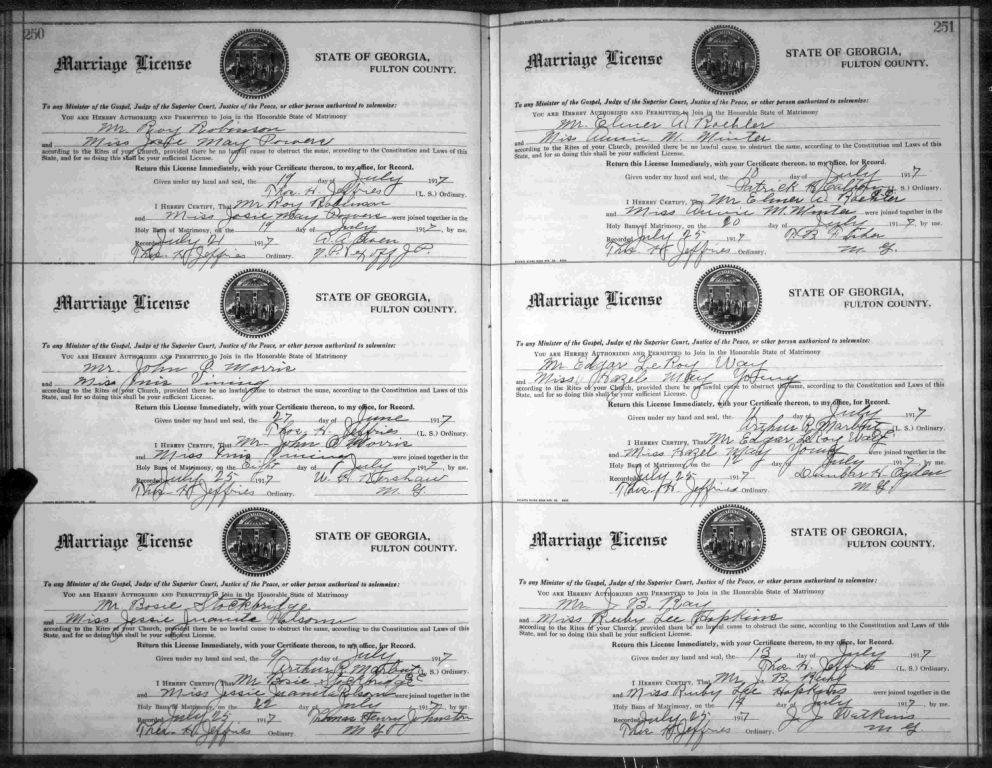 250
Marriage License
STATE OF GEORGIA,
FULTON COUNTY.
To any Minister of the Gospel, Judge of the Superior Court, Justice of the Peace, or other person authorized to solemnize:
YOU ARE HEREBY AUTHORIZED AND PERMITTED to Join in the Honorable State of Matrimony
Mr. Roy Robinson
and Miss Josie May Powers
according to the Rites of your Church, provided there be no lawful cause to obstruct the same, according to the Constitution and Laws of this
State, and for so doing this shall be your sufficient License.
Return this License Immediately, with your Certificate thereon, to my office, for Record.
Given under my hand and seal, the 19 day of July 1917
Thos. H. Jeffries (L. S.) Ordinary.
I HEREBY CERTIFY, That Mr Roy Robinson
and Miss Josie May Powers were joined together in the
Holy Bans of Matrimony, on the 19 day of July 1917, by me.
Recorded July 21 1917
Thos. H Jeffries Ordinary. J.P.
Marriage License
STATE OF GEORGIA,
FULTON COUNTY.
To any Minister of the Gospel, Judge of the Superior Court, Justice of the Peace, or other person authorized to solemnize:
YOU ARE HEREBY AUTHORIZED AND PERMITTED to Join in the Honorable State of Matrimony
Mr. John C Morris
and Miss Inis Vining
according to the Rites of your Church, provided there be no lawful cause to obstruct the same, according to the Constitution and Laws of this
State, and for so doing this shall be your sufficient License.
Return this License Immediately, with your Certificate thereon, to my office, for Record.
Given under my hand and seal, the 27 day of June 1917
Thos. H. Jeffries (L. S.) Ordinary.
I HEREBY CERTIFY, That Mr. John C Morris
and Miss Inis Vining were joined together in the
Holy Bans of Matrimony, on the Eight day of July 1917, by me.
Recorded July 25 1917 W. H. Kershaw
Thos. H Jeffries Ordinary. M. G.
Marriage License
STATE OF GEORGIA,
FULTON COUNTY.
To any Minister of the Gospel, Judge of the Superior Court, Justice of the Peace, or other person authorized to solemnize:
YOU ARE HEREBY AUTHORIZED AND PERMITTED to Join in the Honorable State of Matrimony
Mr Bosie Stockbridge
and Miss Jessie Juanita Folsom
according to the Rites of your Church, provided there be no lawful cause to obstruct the same, according to the Constitution and Laws of this
State, and for so doing this shall be your sufficient License.
Return this License Immediately, with your Certificate thereon, to my office, for Record.
Given under my hand and seal, the 9 day of July 1917
Arthur R. Marbut (L. S.) Ordinary.
I HEREBY CERTIFY, That Mr Bosie Stockbridge
and Miss Jessie Juanita Folsom were joined together in the
Holy Bans of Matrimony, on the 22 day of July 1917, by me.
Recorded July 25 1917 Thomas Henry Johnston
Thos. H Jeffries Ordinary. M. G.
251
Marriage License
STATE OF GEORGIA,
FULTON COUNTY.
To any Minister of the Gospel, Judge of the Superior Court, Justice of the Peace, or other person authorized to solemnize:
YOU ARE HEREBY AUTHORIZED AND PERMITTED to Join in the Honorable State of Matrimony
Mr. Elmer A. Koehler
and Miss Annie M. Minter
according to the Rites of your Church, provided there be no lawful cause to obstruct the same, according to the Constitution and Laws of this
State, and for so doing this shall be your sufficient License.
Return this License Immediately, with your Certificate thereon, to my office, for Record.
Given under my hand and seal, the day of July 1917
Patrick H Calhoun (L. S.) Ordinary.
I HEREBY CERTIFY, That Mr Elmer A. Koehler
and Miss Annie M. Minter were joined together in the
Holy Bans of Matrimony, on the 20 day of July 1917, by me.
Recorded July 25 1917
Thos. H Jeffries Ordinary. M. G.
Marriage License
STATE OF GEORGIA,
FULTON COUNTY.
To any Minister of the Gospel, Judge of the Superior Court, Justice of the Peace, or other person authorized to solemnize:
YOU ARE HEREBY AUTHORIZED AND PERMITTED to Join in the Honorable State of Matrimony
Mr Edgar LeRoy Way
and Miss Hazel May Young
according to the Rites of your Church, provided there be no lawful cause to obstruct the same, according to the Constitution and Laws of this
State, and for so doing this shall be your sufficient License.
Return this License Immediately, with your Certificate thereon, to my office, for Record.
Given under my hand and seal, the day of July 1917
Arthur R. Marbut (L. S.) Ordinary.
I HEREBY CERTIFY, That Mr Edgar LeRoy Way
and Miss Hazel May Young were joined together in the
Holy Bans of Matrimony, on the 12 day of July 1917, by me.
Recorded July 25 1917 Dunbar H. Ogden
Thos. H. Jeffries Ordinary. M. G.
Marriage License
STATE OF GEORGIA,
FULTON COUNTY.
To any Minister of the Gospel, Judge of the Superior Court, Justice of the Peace, or other person authorized to solemnize:
YOU ARE HEREBY AUTHORIZED AND PERMITTED to Join in the Honorable State of Matrimony
Mr. J. B. Ray
and Miss Ruby Lee Hopkins
according to the Rites of your Church, provided there be no lawful cause to obstruct the same, according to the Constitution and Laws of this
State, and for so doing this shall be your sufficient License.
Return this License Immediately, with your Certificate thereon, to my office, for Record.
Given under my hand and seal, the 13 day of July 1917
Thos. H. Jeffries (L. S.) Ordinary.
I HEREBY CERTIFY, That Mr. J. B. Ray
and Miss Ruby Lee Hopkins were joined together in the
Holy Bans of Matrimony, on the 14 day of July 1917, by me.
Recorded July 25 1917 J. J. Watkins
Thos. H Jeffries Ordinary. M. G.